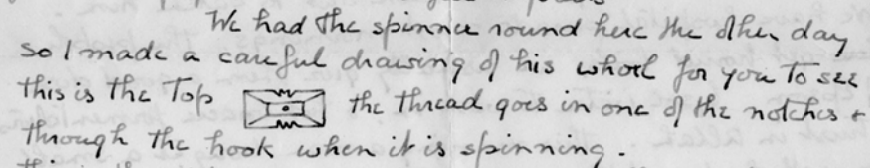 We had the spinner round here the other day
so I made a careful drawing of his whorl for you to see
this is the Top the thread goes in one of the notches +
through the hook when it is spinning.